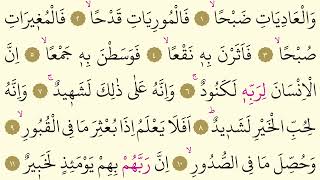 وَالْعَادِيَاتِ ضَبْحًا ﴿١﴾ فَالْمُورِيَاتِ قَدْحًا ﴿٢﴾ فَالْمُغِيرَاتِ
صُبْحًا ﴿٣﴾ فَاَثَرْنَ بِهِ نَقْعًا ﴿٤﴾ فَوَسَطْنَ بِهِ جَمْعًا ﴿٥﴾ اِنَّ
الْاِنْسَانَ لِرَبِّهِ لَكَنُودٌ ﴿٦﴾ وَاِنَّهُ عَلٰى ذٰلِكَ لَشَهِيدٌ ﴿٧﴾ وَاِنَّهُ
لِحُبِّ الْخَيْرِ لَشَدِيدٌ ﴿٨﴾ اَفَلَا يَعْلَمُ اِذَا بُعْثِرَ مَا فِي الْقُبُورِ ﴿٩﴾
وَحُصِّلَ مَا فِي الصُّدُورِ ﴿١٠﴾ اِنَّ رَبَّهُمْ بِهِمْ يَوْمَئِذٍ لَخَبِيرٌ ﴿١١﴾